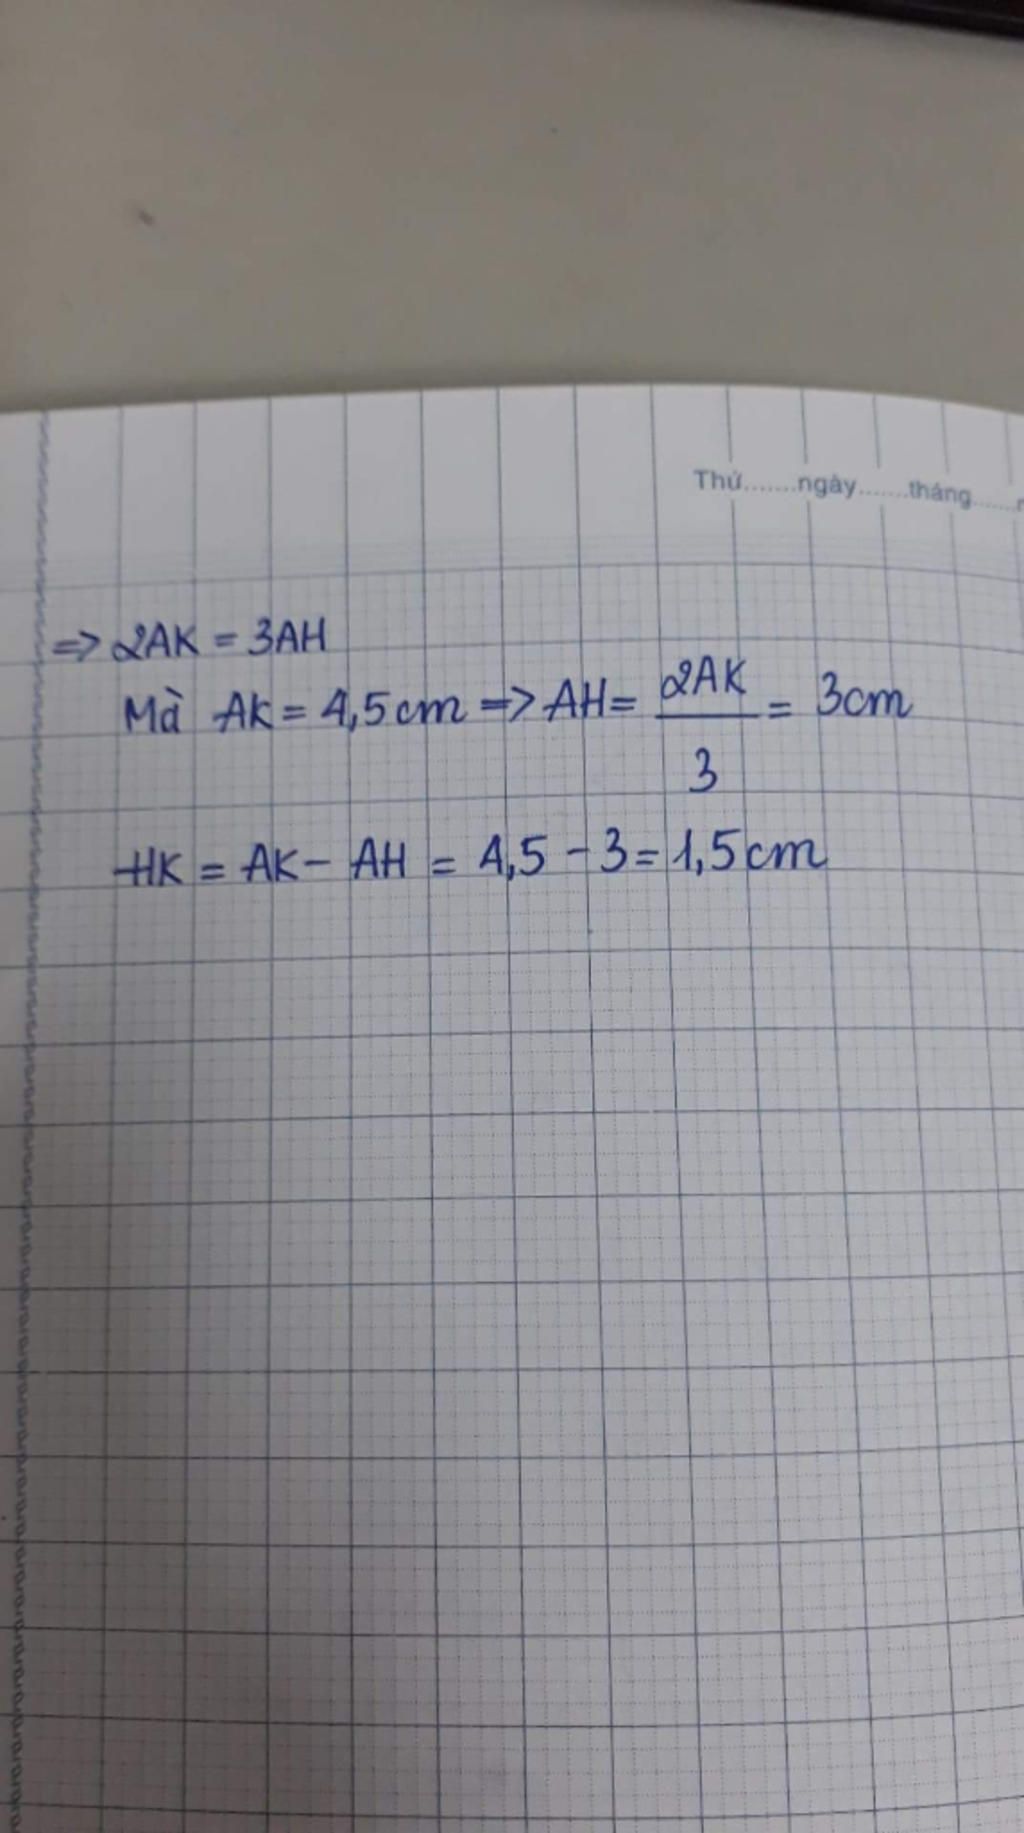 Thứ.......ngày.......tháng.......n
=> 2AK = 3AH
Mà AK = 4,5cm => AH = 2AK/3 = 3cm
HK = AK - AH = 4,5 - 3 = 1,5cm